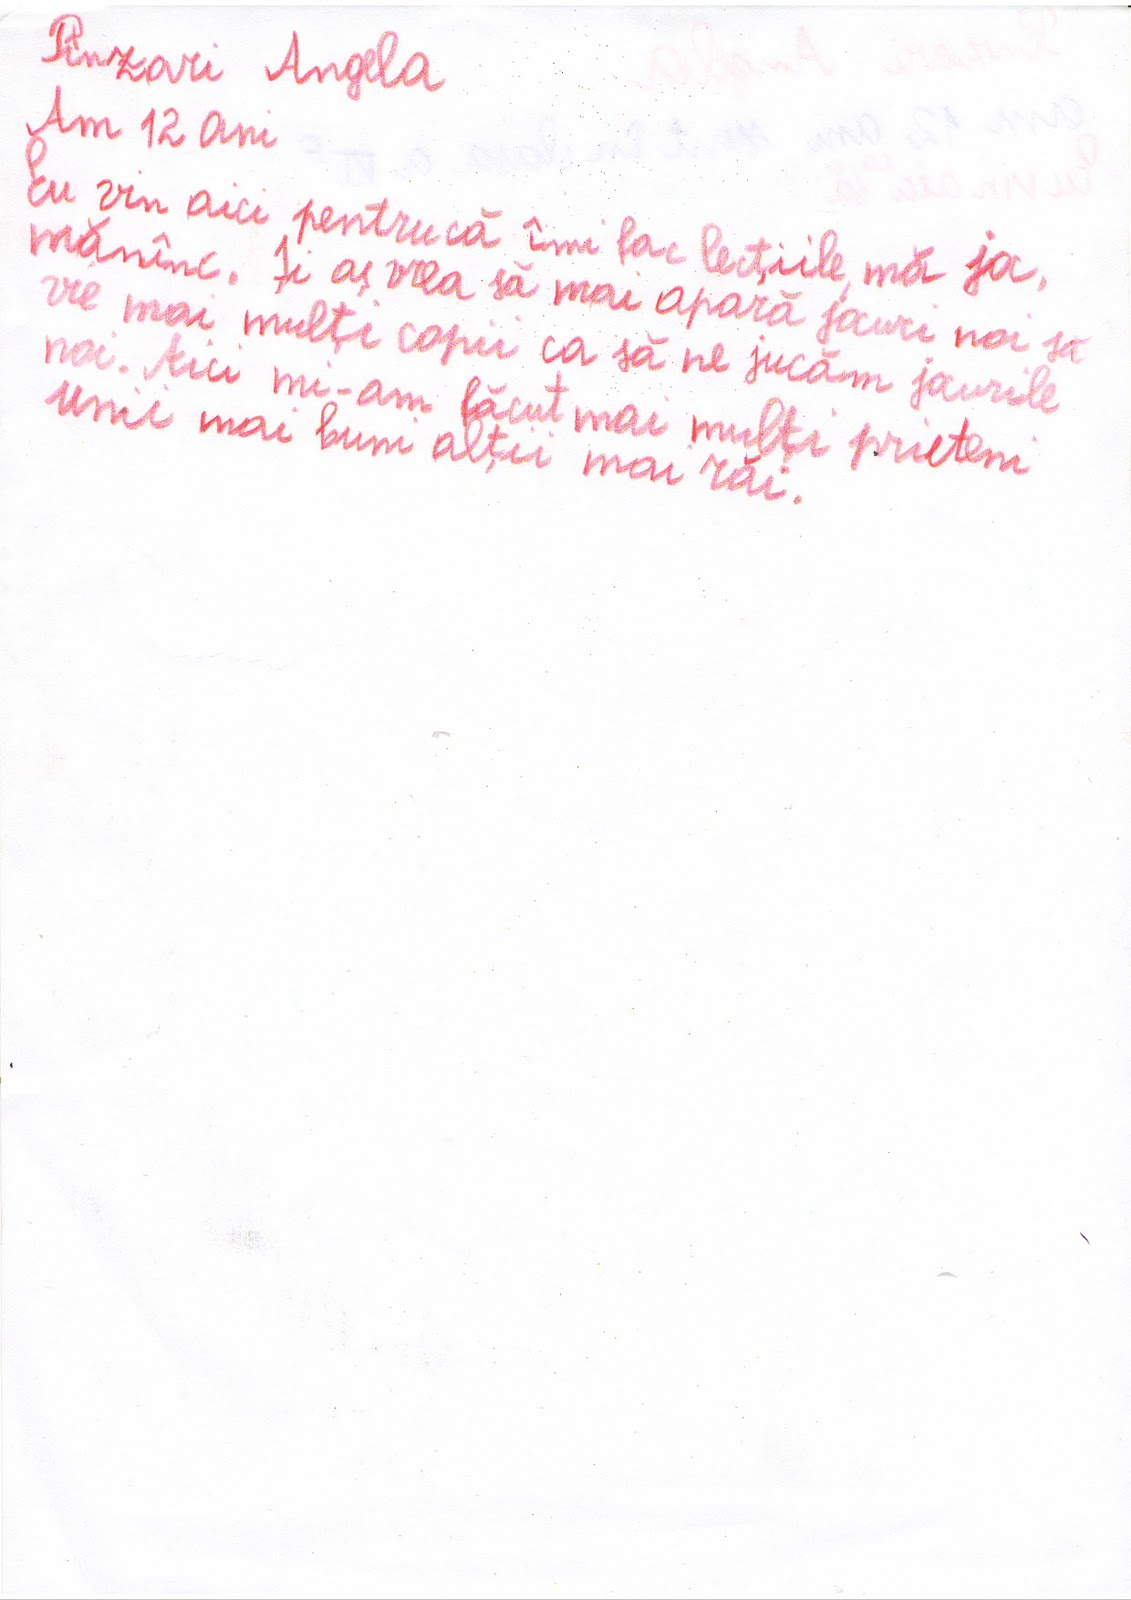 Pînzari Angela
Am 12 ani
Eu vin aici pentrucă îmi fac lecțiile, mă joc,
mănînc. Și aș vrea să mai apară jocuri noi să
vie mai mulți copii ca să ne jucăm jocurile
noi. Aici mi-am făcut mai mulți prieteni
unii mai buni alții mai răi.